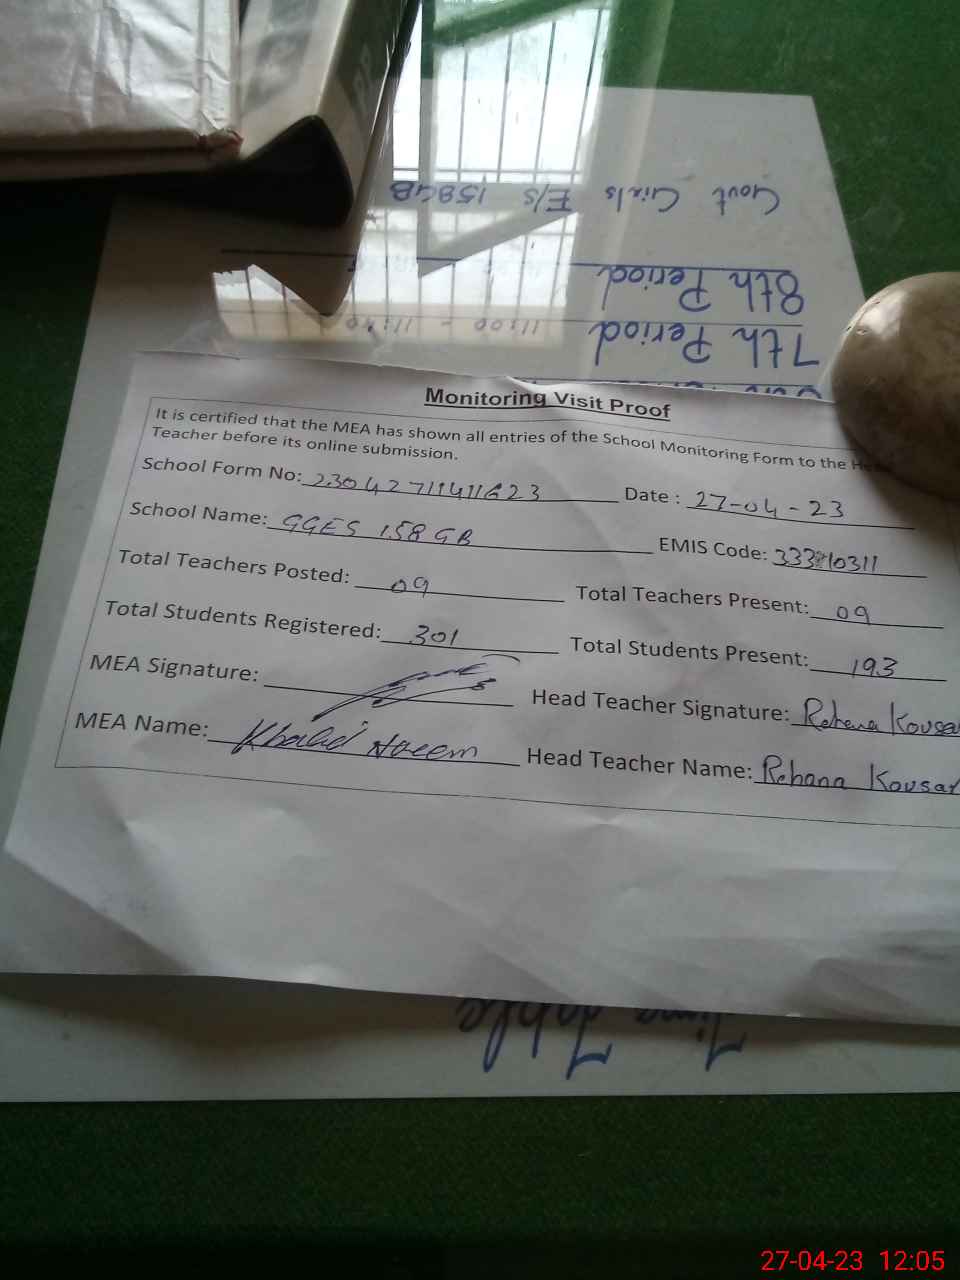 Govt Girls E/S 158GB
8th Period
7th Period 11:00 - 11:40
Monitoring Visit Proof
It is certified that the MEA has shown all entries of the School Monitoring Form to the
Teacher before its online submission.
School Form No: 23042711411623 Date : 27-04-23
School Name: GGES 158 GB EMIS Code: 33310311
Total Teachers Posted: 09 Total Teachers Present: 09
Total Students Registered: 301 Total Students Present: 193
MEA Signature: Head Teacher Signature: Rehana Kousar
MEA Name: Khalid Naeem Head Teacher Name: Rehana Kousar
Time table
27-04-23 12:05